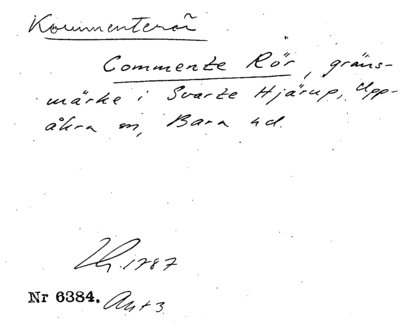 Kommenterör
Commente Rör, gräns-
märke i Svarte Hjärup, Upp-
åkra sn, Bara hd.
1787
Nr 6384. Ant 3